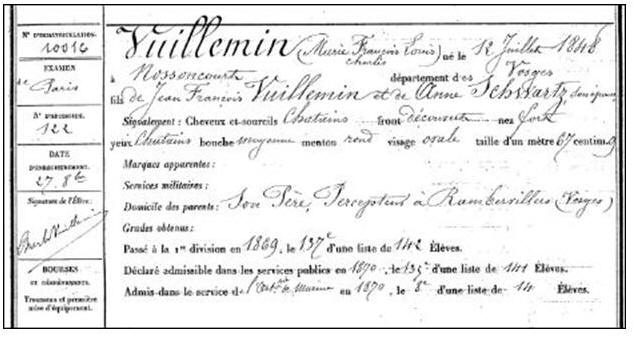 N° D'IMMATRICULATION.
10016
EXAMEN
de Paris
N° D'EXAMEN.
122
DATE
D'ENREGISTREMENT.
27. 8bre
Signature de l'Élève:
BOURSES
ET DÉGRÈVEMENTS.
Trousseau et première
mise d'équipement.
Vuillemin (Marie François Louis) né le 12 Juillet 1848
Charles
à Nossoncourt département des Vosges
fils de Jean François Vuillemin et de Anne Schwartz, son épouse
Signalement : Cheveux et sourcils Châtains front découvert nez fort
yeux Châtains bouche moyenne menton rond visage ovale taille d'un mètre 67 centim
Marques apparentes :
Services militaires :
Domicile des parents : Son Père, Percepteur à Rambervillers (Vosges)
Grades obtenus :
Passé à la 1re division en 1869, le 137e d'une liste de 142 Élèves.
Déclaré admissible dans les services publics en 1870, le 135e d'une liste de 141 Élèves.
Admis dans le service de l'Artie de marine en 1870, le 8e d'une liste de 14 Élèves.